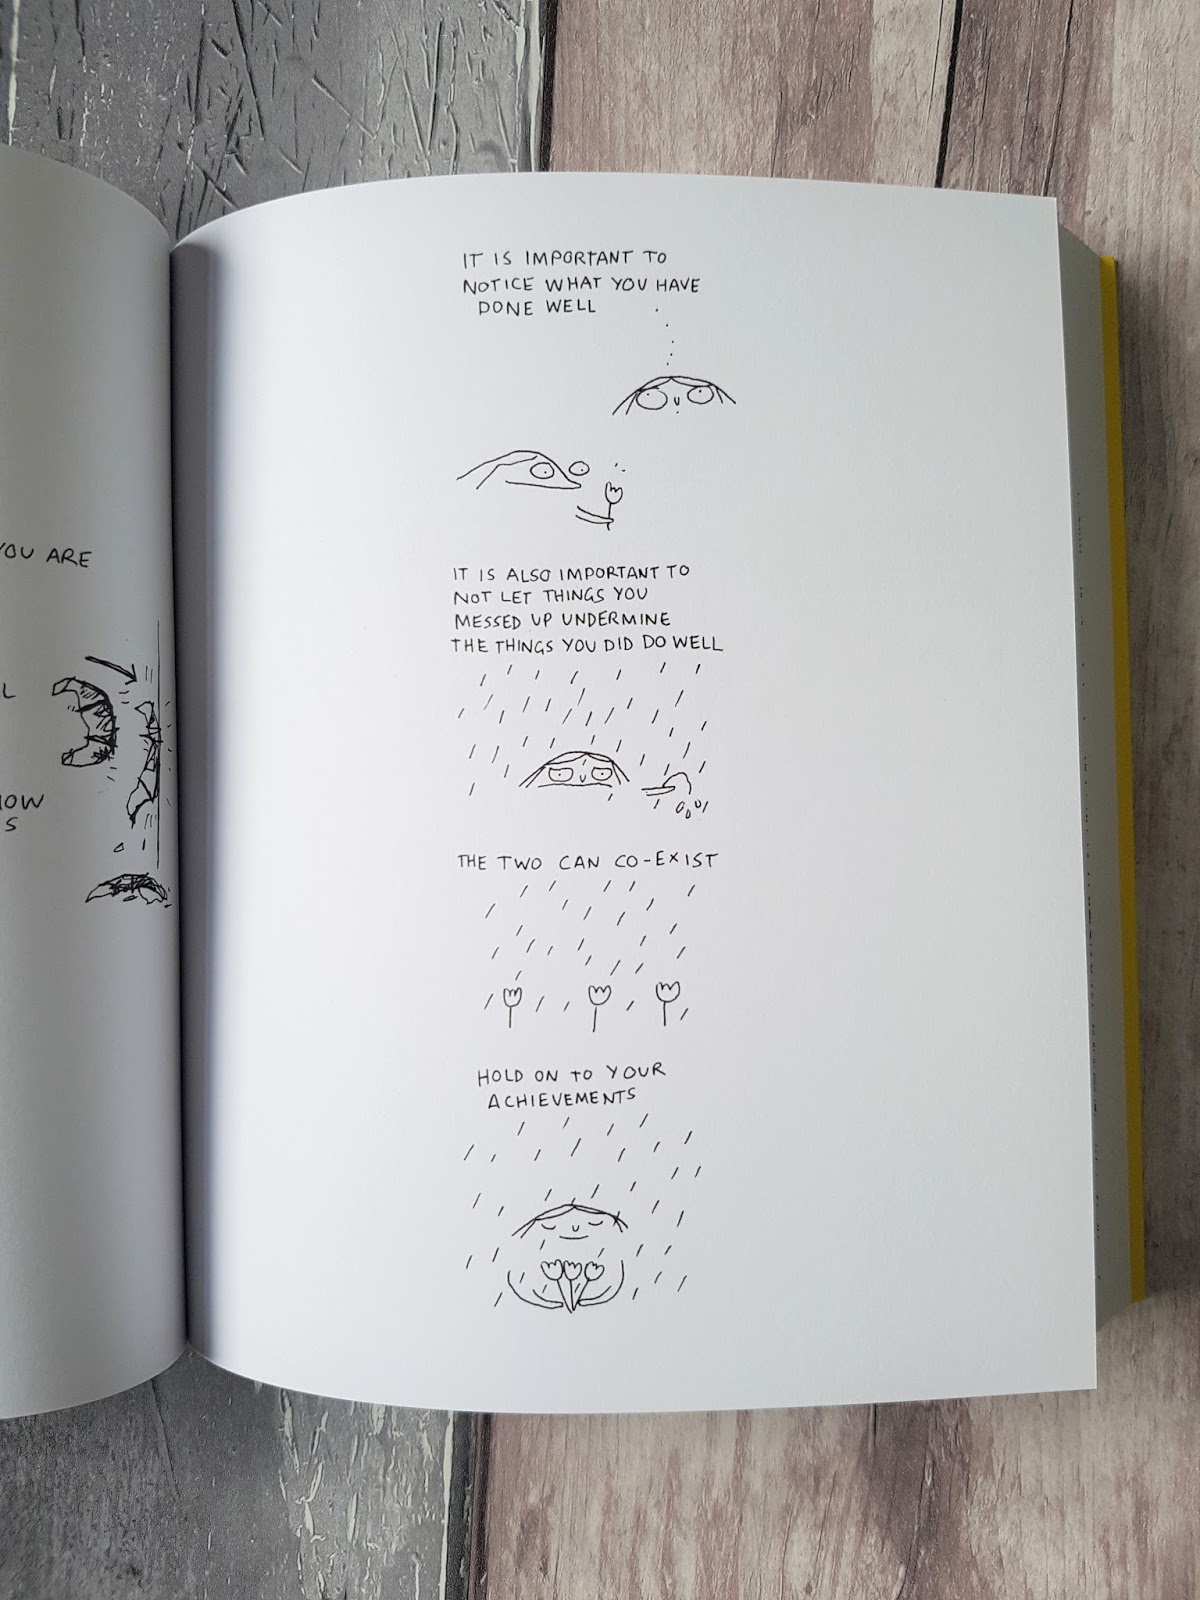 YOU ARE
IT IS IMPORTANT TO
NOTICE WHAT YOU HAVE
DONE WELL
IT IS ALSO IMPORTANT TO
NOT LET THINGS YOU
MESSED UP UNDERMINE
THE THINGS YOU DID DO WELL
THE TWO CAN CO-EXIST
HOLD ON TO YOUR
ACHIEVEMENTS